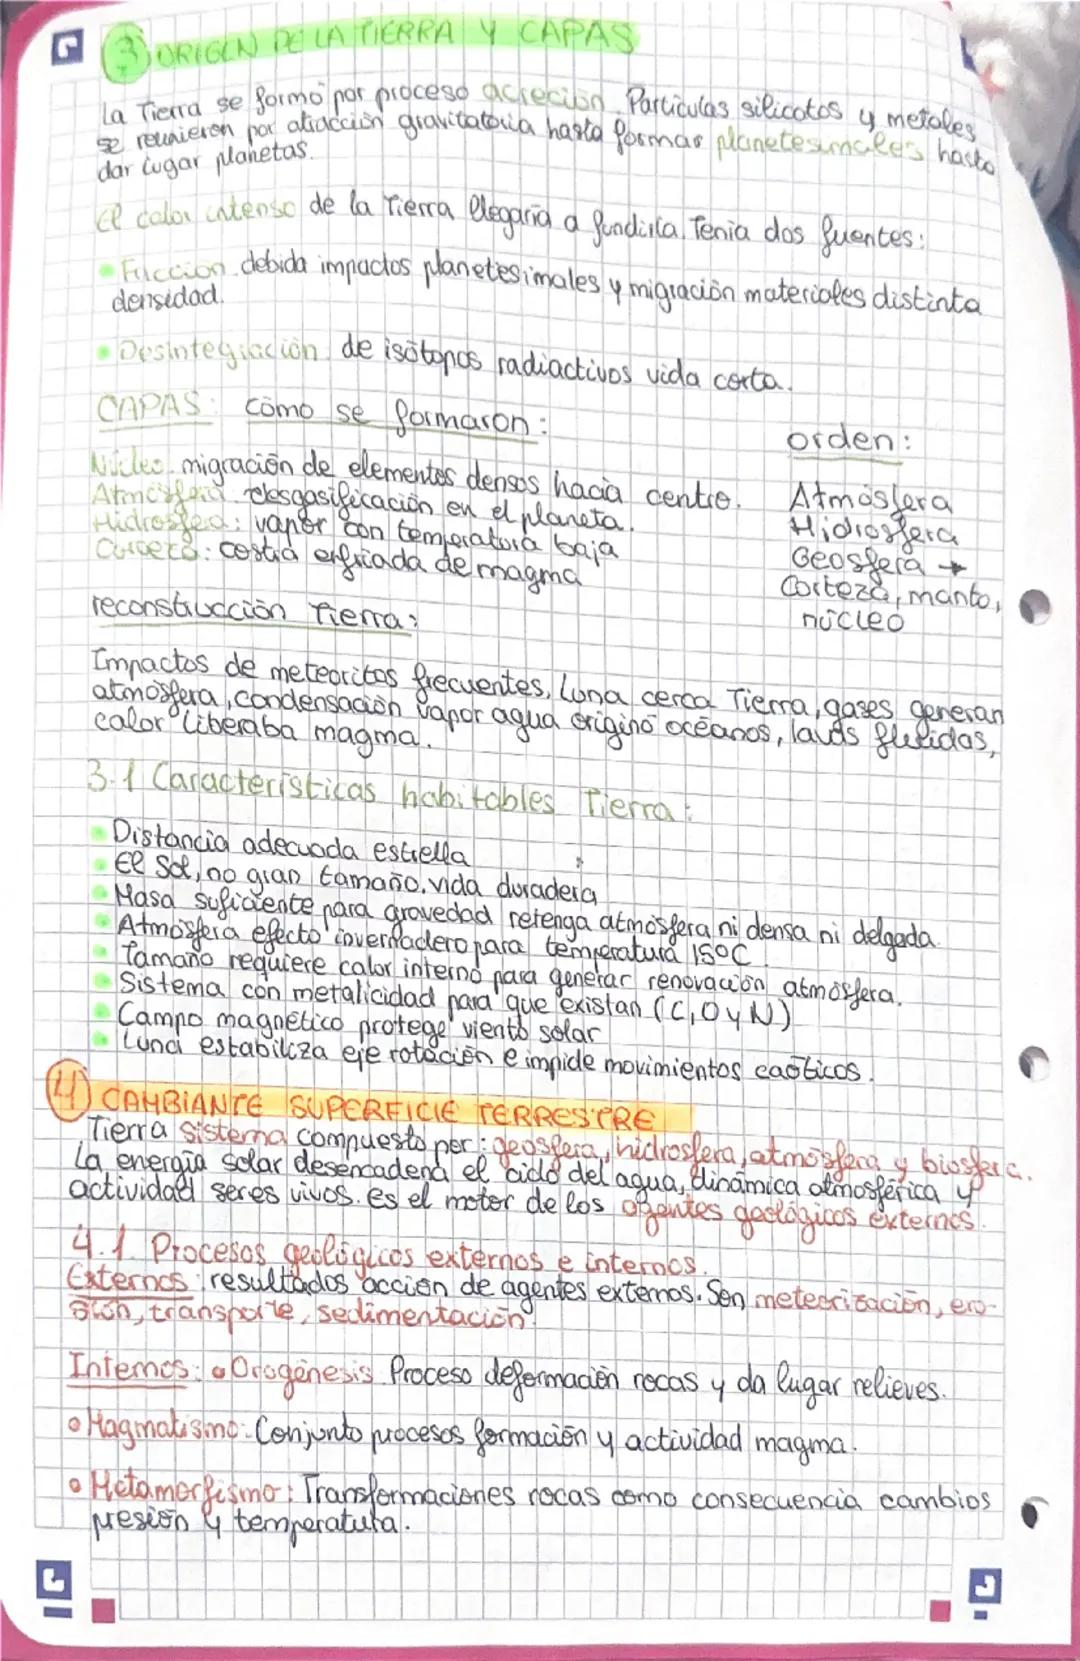 3 ORIGEN DE LA TIERRA Y CAPAS
La Tierra se formó por proceso acreción. Partículas silicatos y metales
se reunieron por atracción gravitatoria hasta formar planetesimales hasta
dar lugar planetas.
El calor intenso de la Tierra llegaría a fundirla. Tenía dos fuentes:
• Fricción debida impactos planetesimales y migración materiales distinta
densidad.
• Desintegración de isótopos radiactivos vida corta.
CAPAS: cómo se formaron:
Núcleo migración de elementos densos hacia centro.
Atmósfera desgasificación en el planeta.
Hidrosfera: vapor con temperatura baja
Corteza: costra enfriada de magma
orden:
Atmósfera
Hidrosfera
Geosfera →
Corteza, manto,
núcleo
reconstrucción Tierra:
Impactos de meteoritos frecuentes, Luna cerca Tierra, gases generan
atmósfera, condensación vapor agua originó océanos, lavas fluidas,
calor liberaba magma.
3.1 Características habitables Tierra:
• Distancia adecuada estrella
• El Sol, no gran tamaño, vida duradera
• Masa suficiente para gravedad retenga atmósfera ni densa ni delgada.
• Atmósfera efecto invernadero para temperatura 15ºC.
• Tamaño requiere calor interno para generar renovación atmósfera.
• Sistema con metalicidad para que existan (C, O y N)
• Campo magnético protege viento solar
• Luna estabiliza eje rotación e impide movimientos caóticos.
4 CAMBIANTE SUPERFICIE TERRESTRE
Tierra sistema compuesto por: geosfera, hidrosfera, atmósfera y biosfera.
La energía solar desencadena el ciclo del agua, dinámica atmosférica y
actividad seres vivos. es el motor de los agentes geológicos externos.
4.1. Procesos geológicos externos e internos.
Externos: resultados acción de agentes externos. Son meteorización, ero-
sión, transporte, sedimentación.
Internos: • Orogénesis Proceso deformación rocas y da lugar relieves.
• Magmatismo: Conjunto procesos formación y actividad magma.
• Metamorfismo: Transformaciones rocas como consecuencia cambios
presión y temperatura.